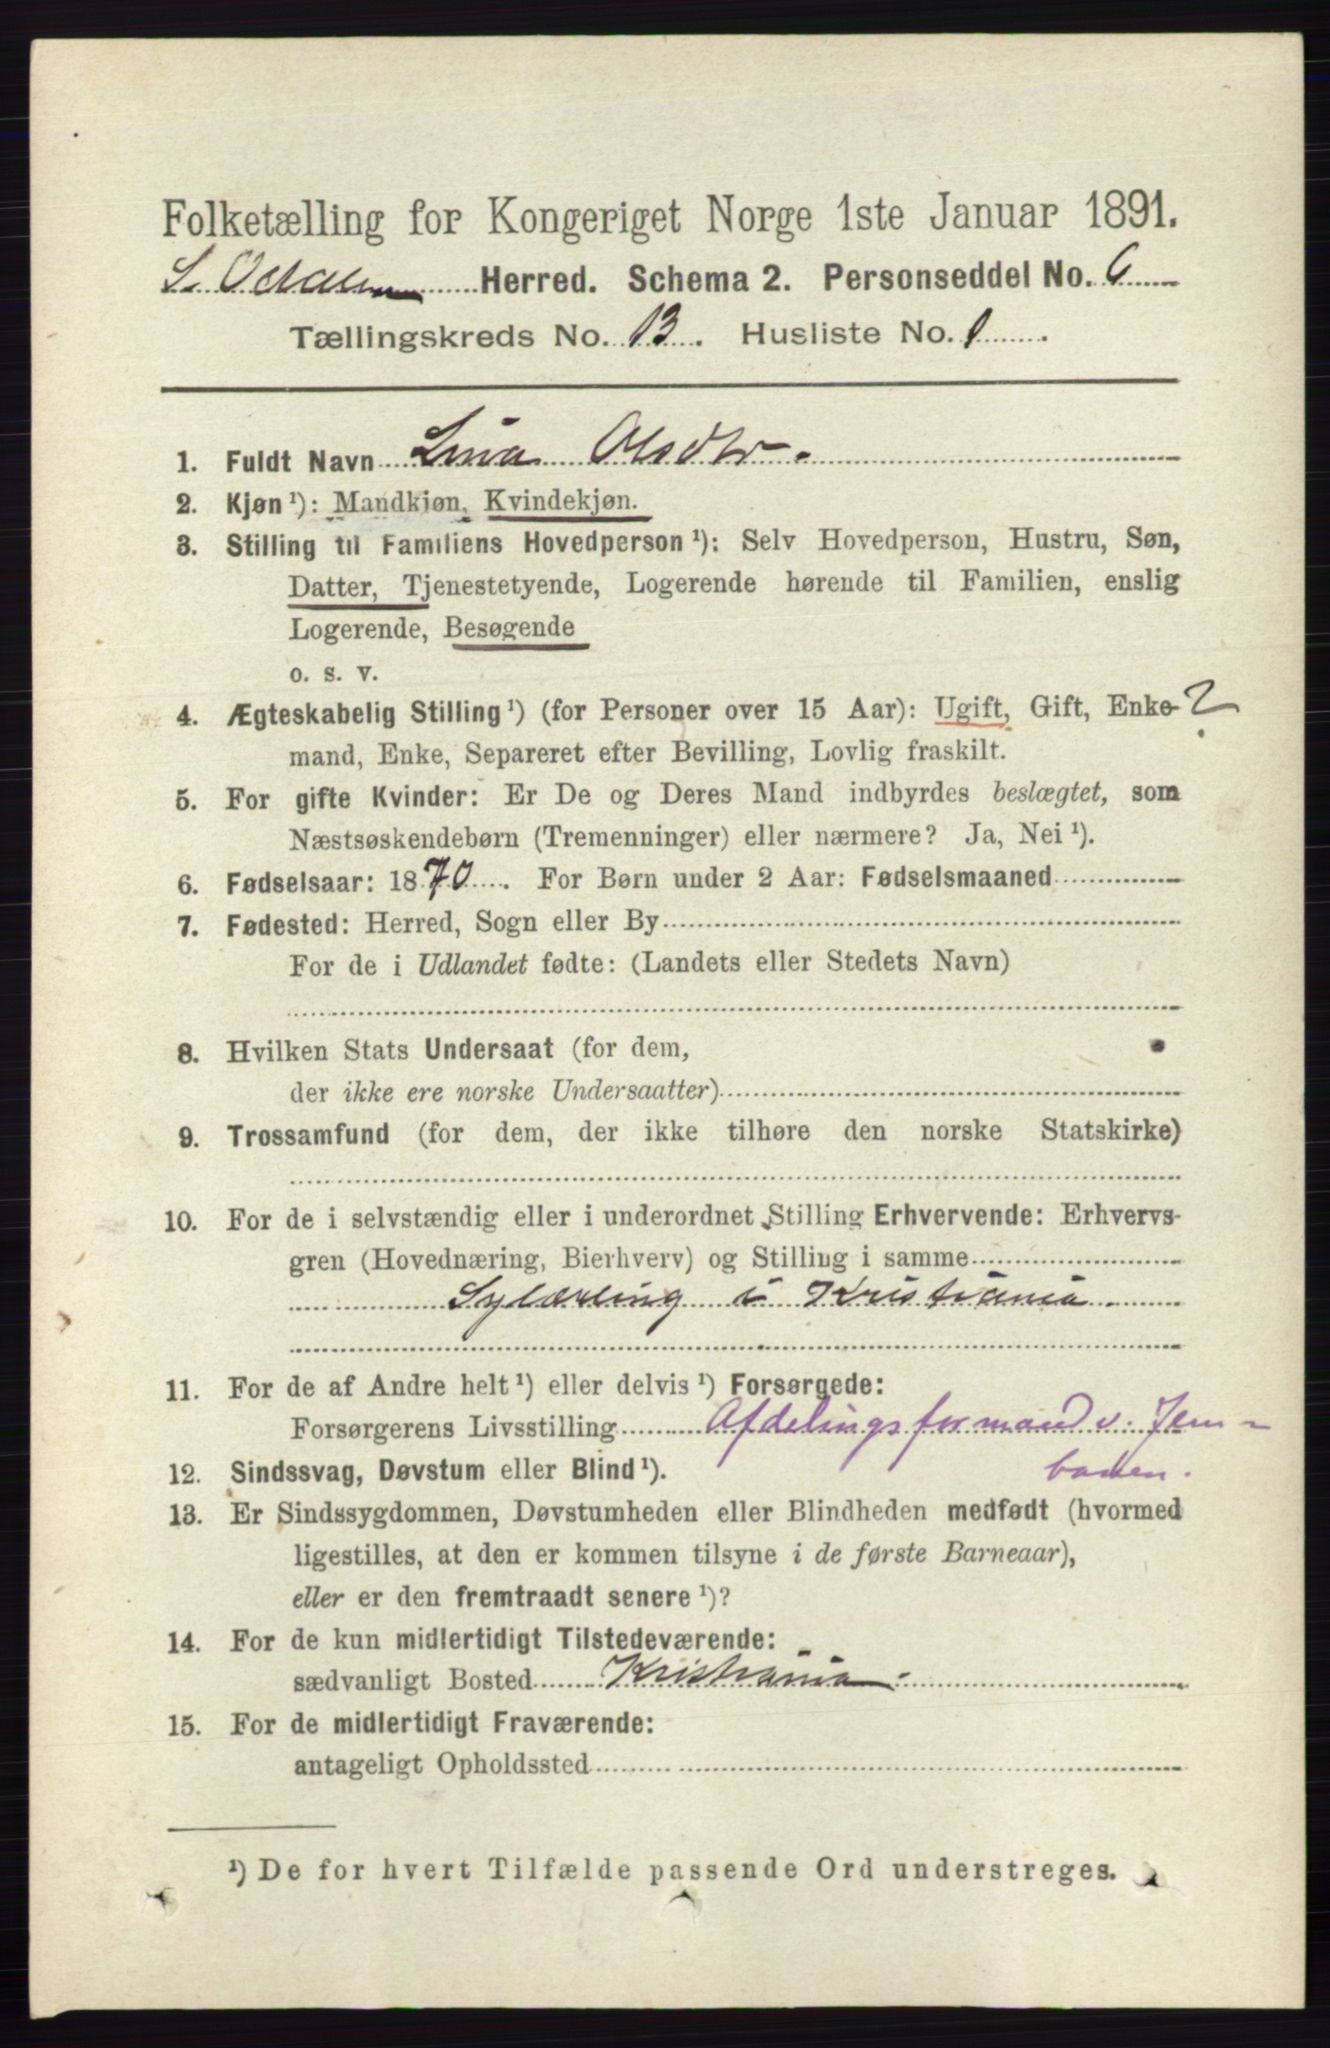 Folketælling for Kongeriget Norge 1ste Januar 1891.
S. Odalen Herred. Schema 2. Personseddel No. 6
Tællingskreds No. 13. Husliste No. 1.
1. Fuldt Navn Lina Olsdtr.
2. Kjøn ¹): Mandkjøn, Kvindekjøn.
3. Stilling til Familiens Hovedperson ¹): Selv Hovedperson, Hustru, Søn,
Datter, Tjenestetyende, Logerende hørende til Familien, enslig
Logerende, Besøgende
o. s. v.
4. Ægteskabelig Stilling ¹) (for Personer over 15 Aar): Ugift, Gift, Enke- ?
mand, Enke, Separeret efter Bevilling, Lovlig fraskilt.
5. For gifte Kvinder: Er De og Deres Mand indbyrdes beslægtet, som
Næstsøskendebørn (Tremenninger) eller nærmere? Ja, Nei ¹).
6. Fødselsaar: 1870. For Børn under 2 Aar: Fødselsmaaned
7. Fødested: Herred, Sogn eller By
For de i Udlandet fødte: (Landets eller Stedets Navn)
8. Hvilken Stats Undersaat (for dem,
der ikke ere norske Undersaatter)
9. Trossamfund (for dem, der ikke tilhøre den norske Statskirke)
10. For de i selvstændig eller i underordnet Stilling Erhvervende: Erhvervs-
gren (Hovednæring, Bierhverv) og Stilling i samme
Sylærling i Kristiania
11. For de af Andre helt ¹) eller delvis ¹) Forsørgede:
Forsørgerens Livsstilling Afdelingsformand v. Jern-
banen.
12. Sindssvag, Døvstum eller Blind ¹).
13. Er Sindssygdommen, Døvstumheden eller Blindheden medfødt (hvormed
ligestilles, at den er kommen tilsyne i de første Barneaar),
eller er den fremtraadt senere ¹)?
14. For de kun midlertidigt Tilstedeværende:
sædvanligt Bosted Kristiania
15. For de midlertidigt Fraværende:
antageligt Opholdssted
¹) De for hvert Tilfælde passende Ord understreges.